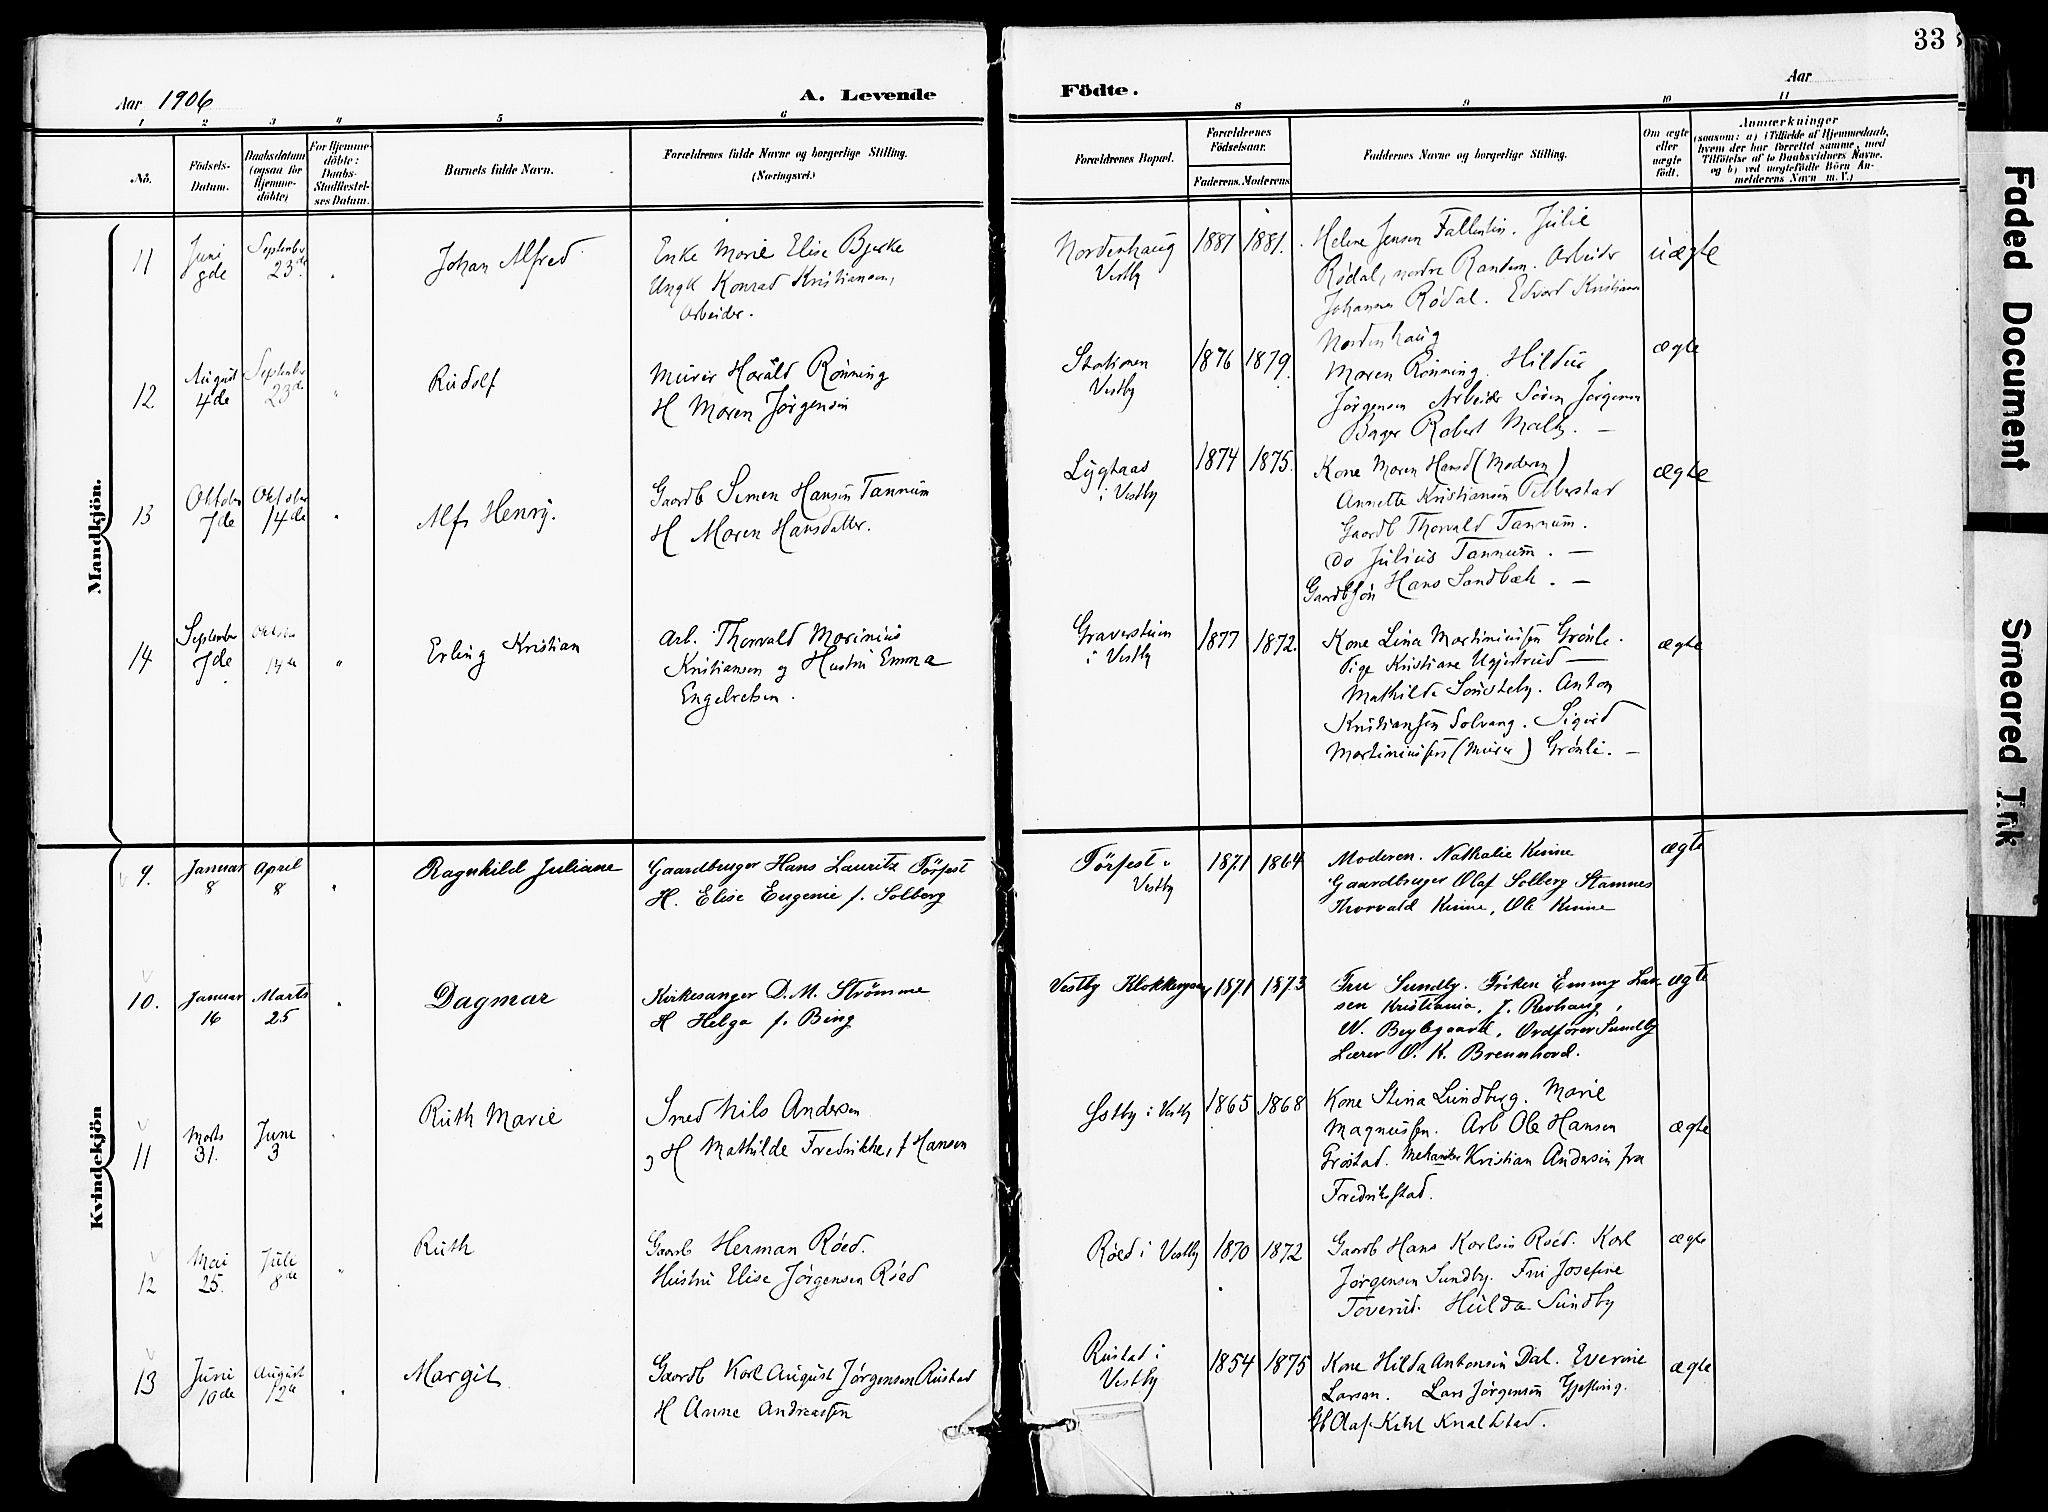 33
Aar 1906
A. Levende
Födte.
Aar
1 2 3 4 5 6 8 9 10 11
No.
Födsels-Datum.
Daabsdatum (ogsaa for Hjemme-döbte)
For Hjemme-döbte: Daabs-Stadfæstel-ses Datum.
Barnets fulde Navn.
Forældrenes fulde Navne og borgerlige Stilling.
(Næringsvei.)
Forældrenes Bopæl.
Forældrenes Födselsaar.
Faderens. Moderens.
Faddernes Navne og borgerlige Stilling.
Om ægte eller uægte födt.
Anmærkninger
(saasom: a) i Tilfælde af Hjemmedaab,
hvem der har forrettet samme, med
Tilföielse af to Daabsvidners Navne.
og b) ved uægtefödte Börn An-
melderens Navn m. V.)
Mandkjön.
11 Juni 9de September 23de " Johan Alfred
Enke Marie Elise Bjerke
Ungk Konrad Kristiansen,
Arbeider.
Nordenhaug Vestby 1887 1881.
Helene Jensen Fallentin. Julie
Rödal, nordre Randem. Arbeider
Johannes Rödal. Edvard Kristiansen
Nordenhaug
uægte
12. August 4de September 23de " Rudolf
Murer Harald Rönning
H Maren Jörgensen
Stationen Vestby 1876 1879.
Maren Rönning. Hildur
Jörgensen Arbeider Sören Jörgensen
Bager Robert Malty. —
ægte
13 Oktober 7de Oktober 14de " Alf Henry.
Gaardb Simen Hansen Tannum
H Maren Hansdatter.
Lygtaas i Vestby 1874 1875.
Kone Maren Hansd (Moderen)
Annette Kristiansen Pelberstad
Gaardb Thorvald Tannum.
do Julius Tannum. —
Gaardbsön Hans Sandbæk. —
ægte
14 September 7de Oktober 14de " Erling Kristian
Arb. Thorvald Marinius
Kristiansen og Hustru Emma
Engelretsen.
Graverstuen i Vestby 1877 1872.
Kone Lina Martiniusen Grönli.
Pige Kristiane Ugjestrud —
Mathilde Sönsteby. Anton
Kristiansen Solvang. Sigurd
Martiniussen (Murer) Grönli. —
ægte
Kvindekjön
9. Januar 8 April 8 " Ragnhild Juliane
Gaardbruger Hans Lauritz Törfest
H. Elise Eugenie f. Solberg
Törfest i Vestby 1871 1864
Moderen. Nathalie Kinne
Gaardbruger Olaf Solberg Stamnes
Thorvald Kinne, Ole Kinne
ægte
10. Januar 16 Marts 25 " Dagmar
Kirkesanger D. M. Strömme
H Helga f. Bing
Vestby Klokkergaard 1871 1873
Fru Sundby. Fröken Emmy Lar-
sen Kristiania, J. Revhaug,
W. Beylegaard, Ordförer Sundby
Lærer O. K. Brennhovd.
ægte
11 Marts 31. June 3 " Ruth Marie
Smed Nils Andersen
og H Mathilde Fredrikke, f Hansen
Östby i Vestby 1865 1868
Kone Stina Lundberg. Marie
Magnussen. Arb Ole Hansen
Gröstad. Mekaniker Kristian Andersen fra
Fredrikstad.
ægte
12 Mai 25. Juli 8de " Ruth
Gaardb Herman Röed.
Hustru Elise Jörgensen Röed
Röed i Vestby 1870 1872
Gaardb Hans Karlsen Röed. Karl
Jörgensen Sundby. Fru Josefine
Toverud. Hulda Sundby
ægte
13 Juni 10de August 12te " Margit
Gaardb Karl August Jörgensen Rustad
H Anne Andreassen
Rustad i Vestby 1854 1875
Kone Hilda Antonsen Dal. Everine
Larsen. Lars Jörgensen Gjöfling.
Gb Olaf Kihl Knalstad.
ægte
Faded Document
Smeared Ink